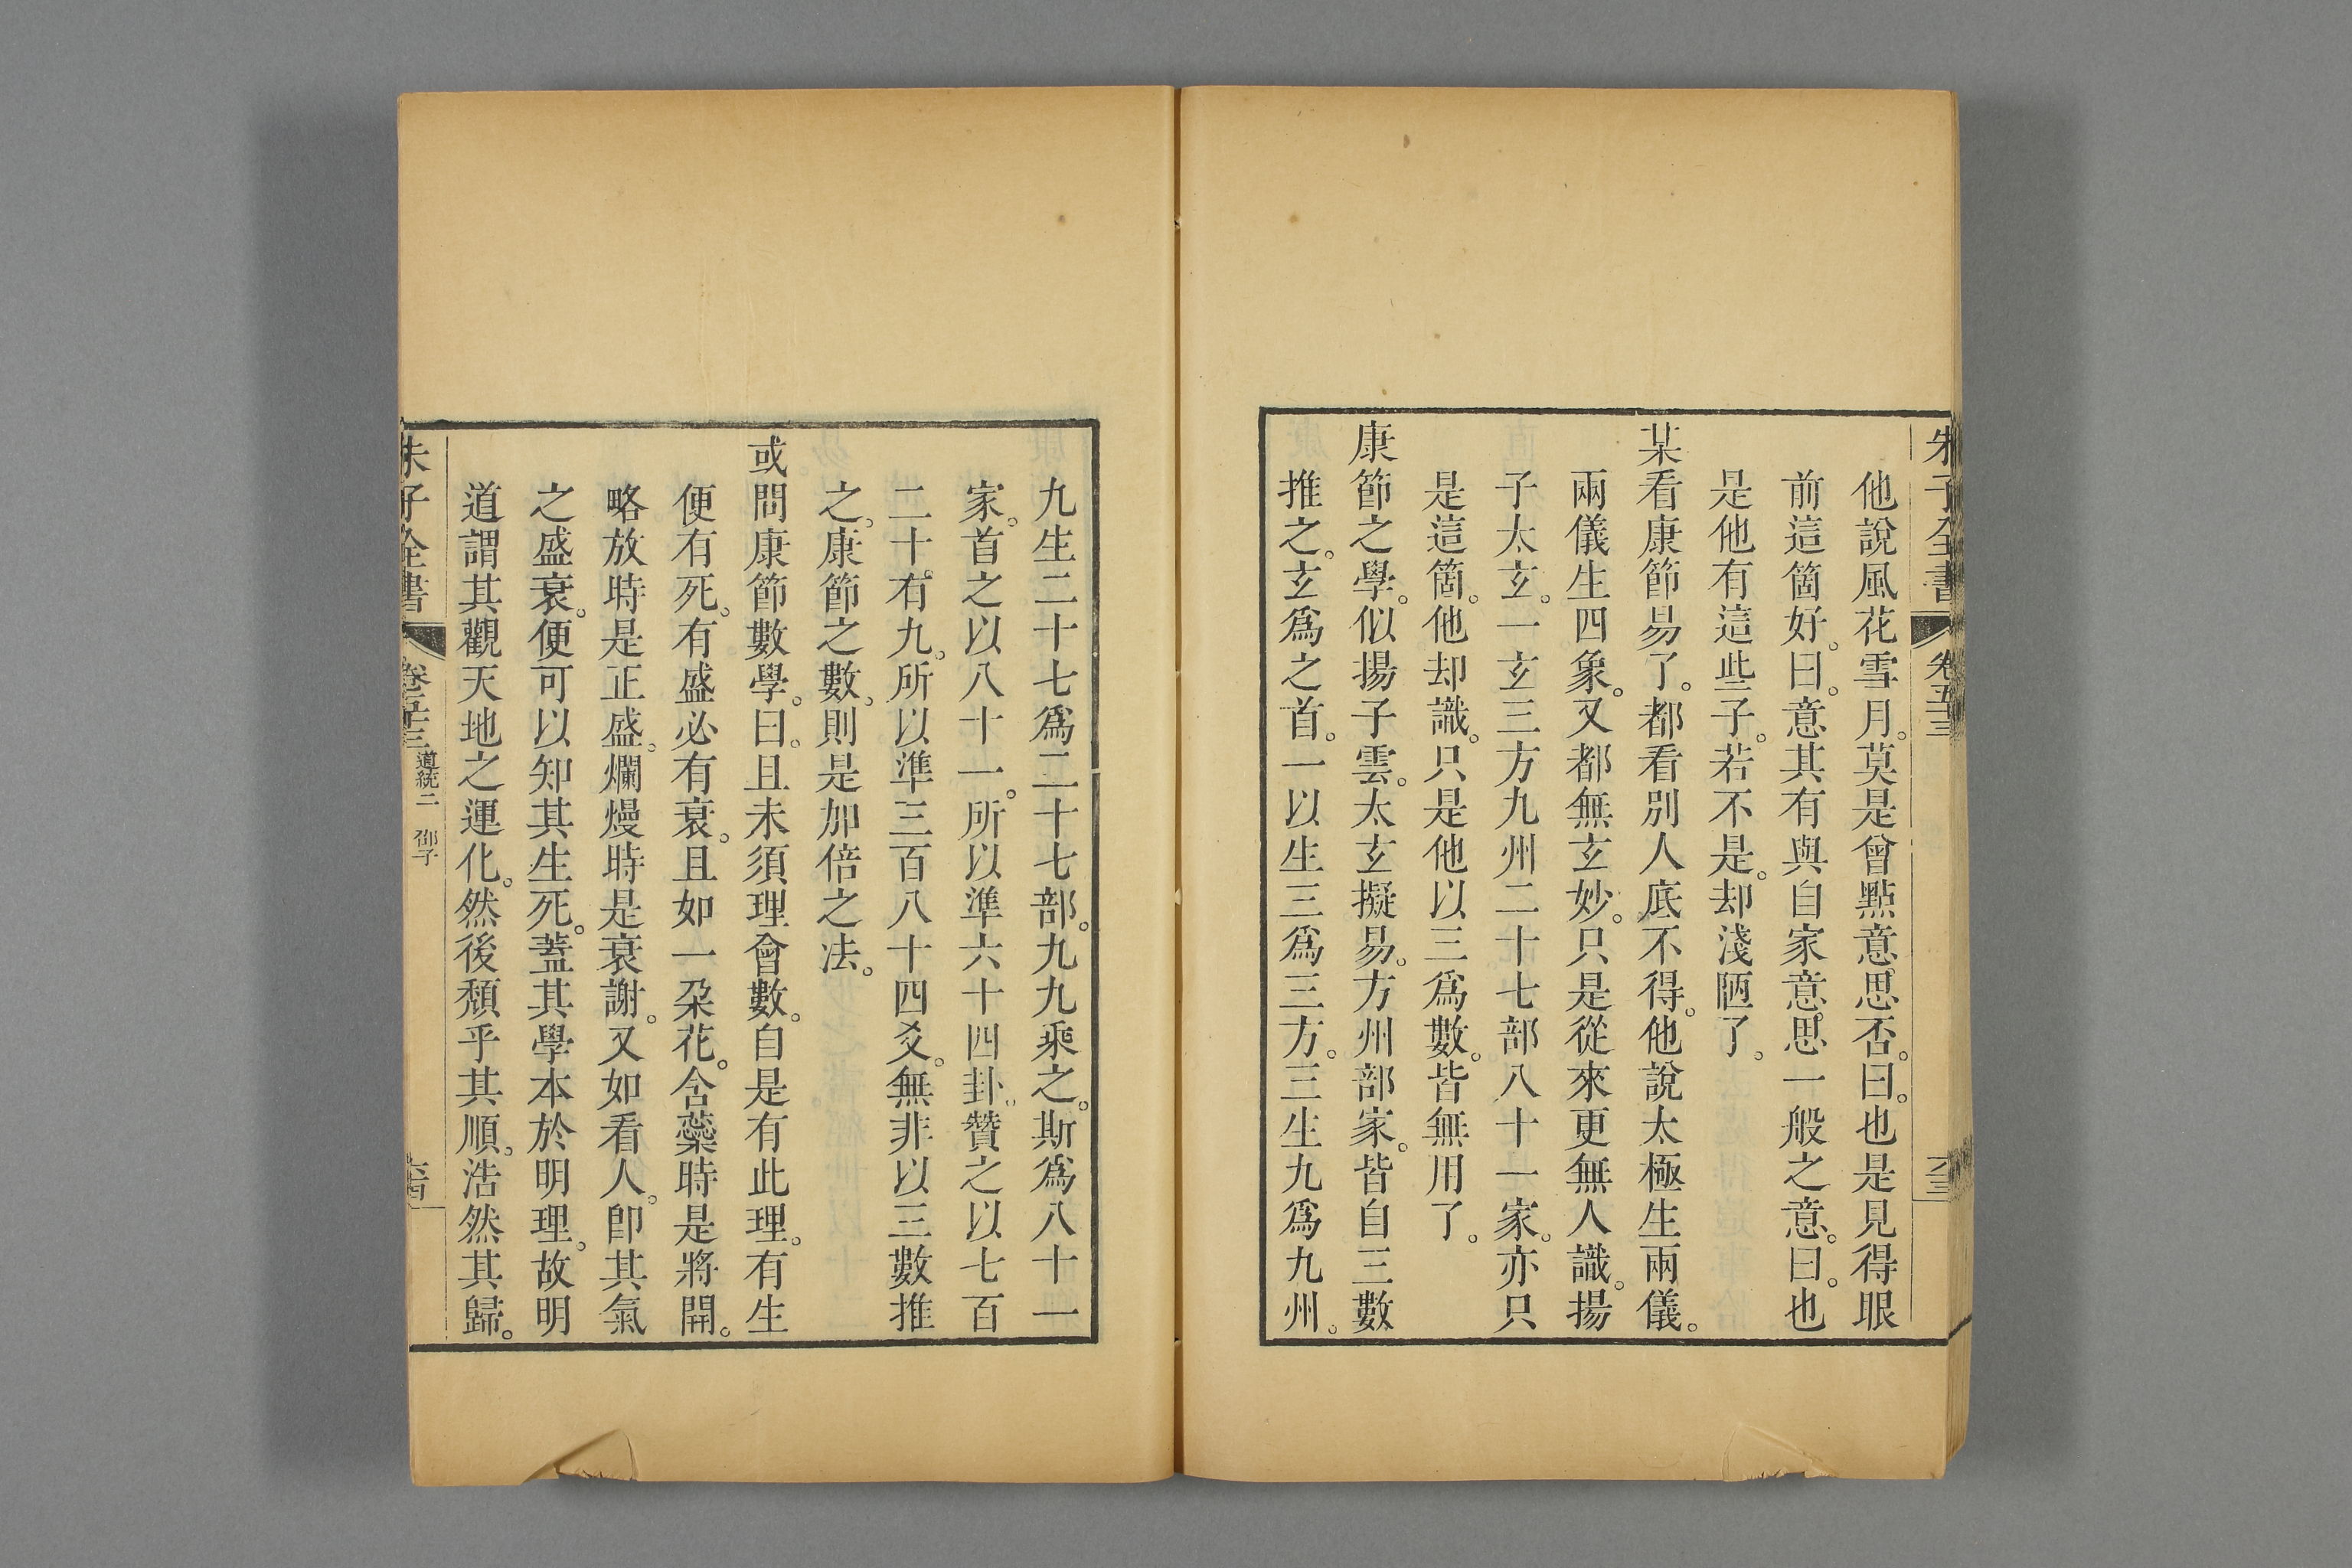 朱子全書
卷五十三
他說風花雪月。莫是曾點意思否。曰。也是見得眼
前這箇好。曰。意其有與自家意思一般之意。曰。也
是他有這些子。若不是。却淺陋了。
某看康節易了。都看別人底不得。他說太極生兩儀。
兩儀生四象。又都無玄妙。只是從來更無人識。揚
子太玄。一玄三方九州二十七部八十一家。亦只
是這箇。他却識。只是他以三爲數。皆無用了。
康節之學。似揚子雲。太玄擬易。方州部家。皆自三數
推之。玄爲之首。一以生三爲三方。三生九爲九州。
九生二十七爲二十七部。九九乘之。斯爲八十一
家。首之以八十一。所以準六十四卦。贊之以七百
二十有九。所以準三百八十四爻。無非以三數推
之。康節之數。則是加倍之法。
或問康節數學。曰。且未須理會數。自是有此理。有生
便有死。有盛必有衰。且如一朶花。含蘂時是將開。
略放時是正盛。爛熳時是衰謝。又如看人。卽其氣
之盛衰。便可以知其生死。蓋其學本於明理。故明
道謂其觀天地之運化。然後頹乎其順。浩然其歸。
朱子全書
卷五十三
道統二 邵子